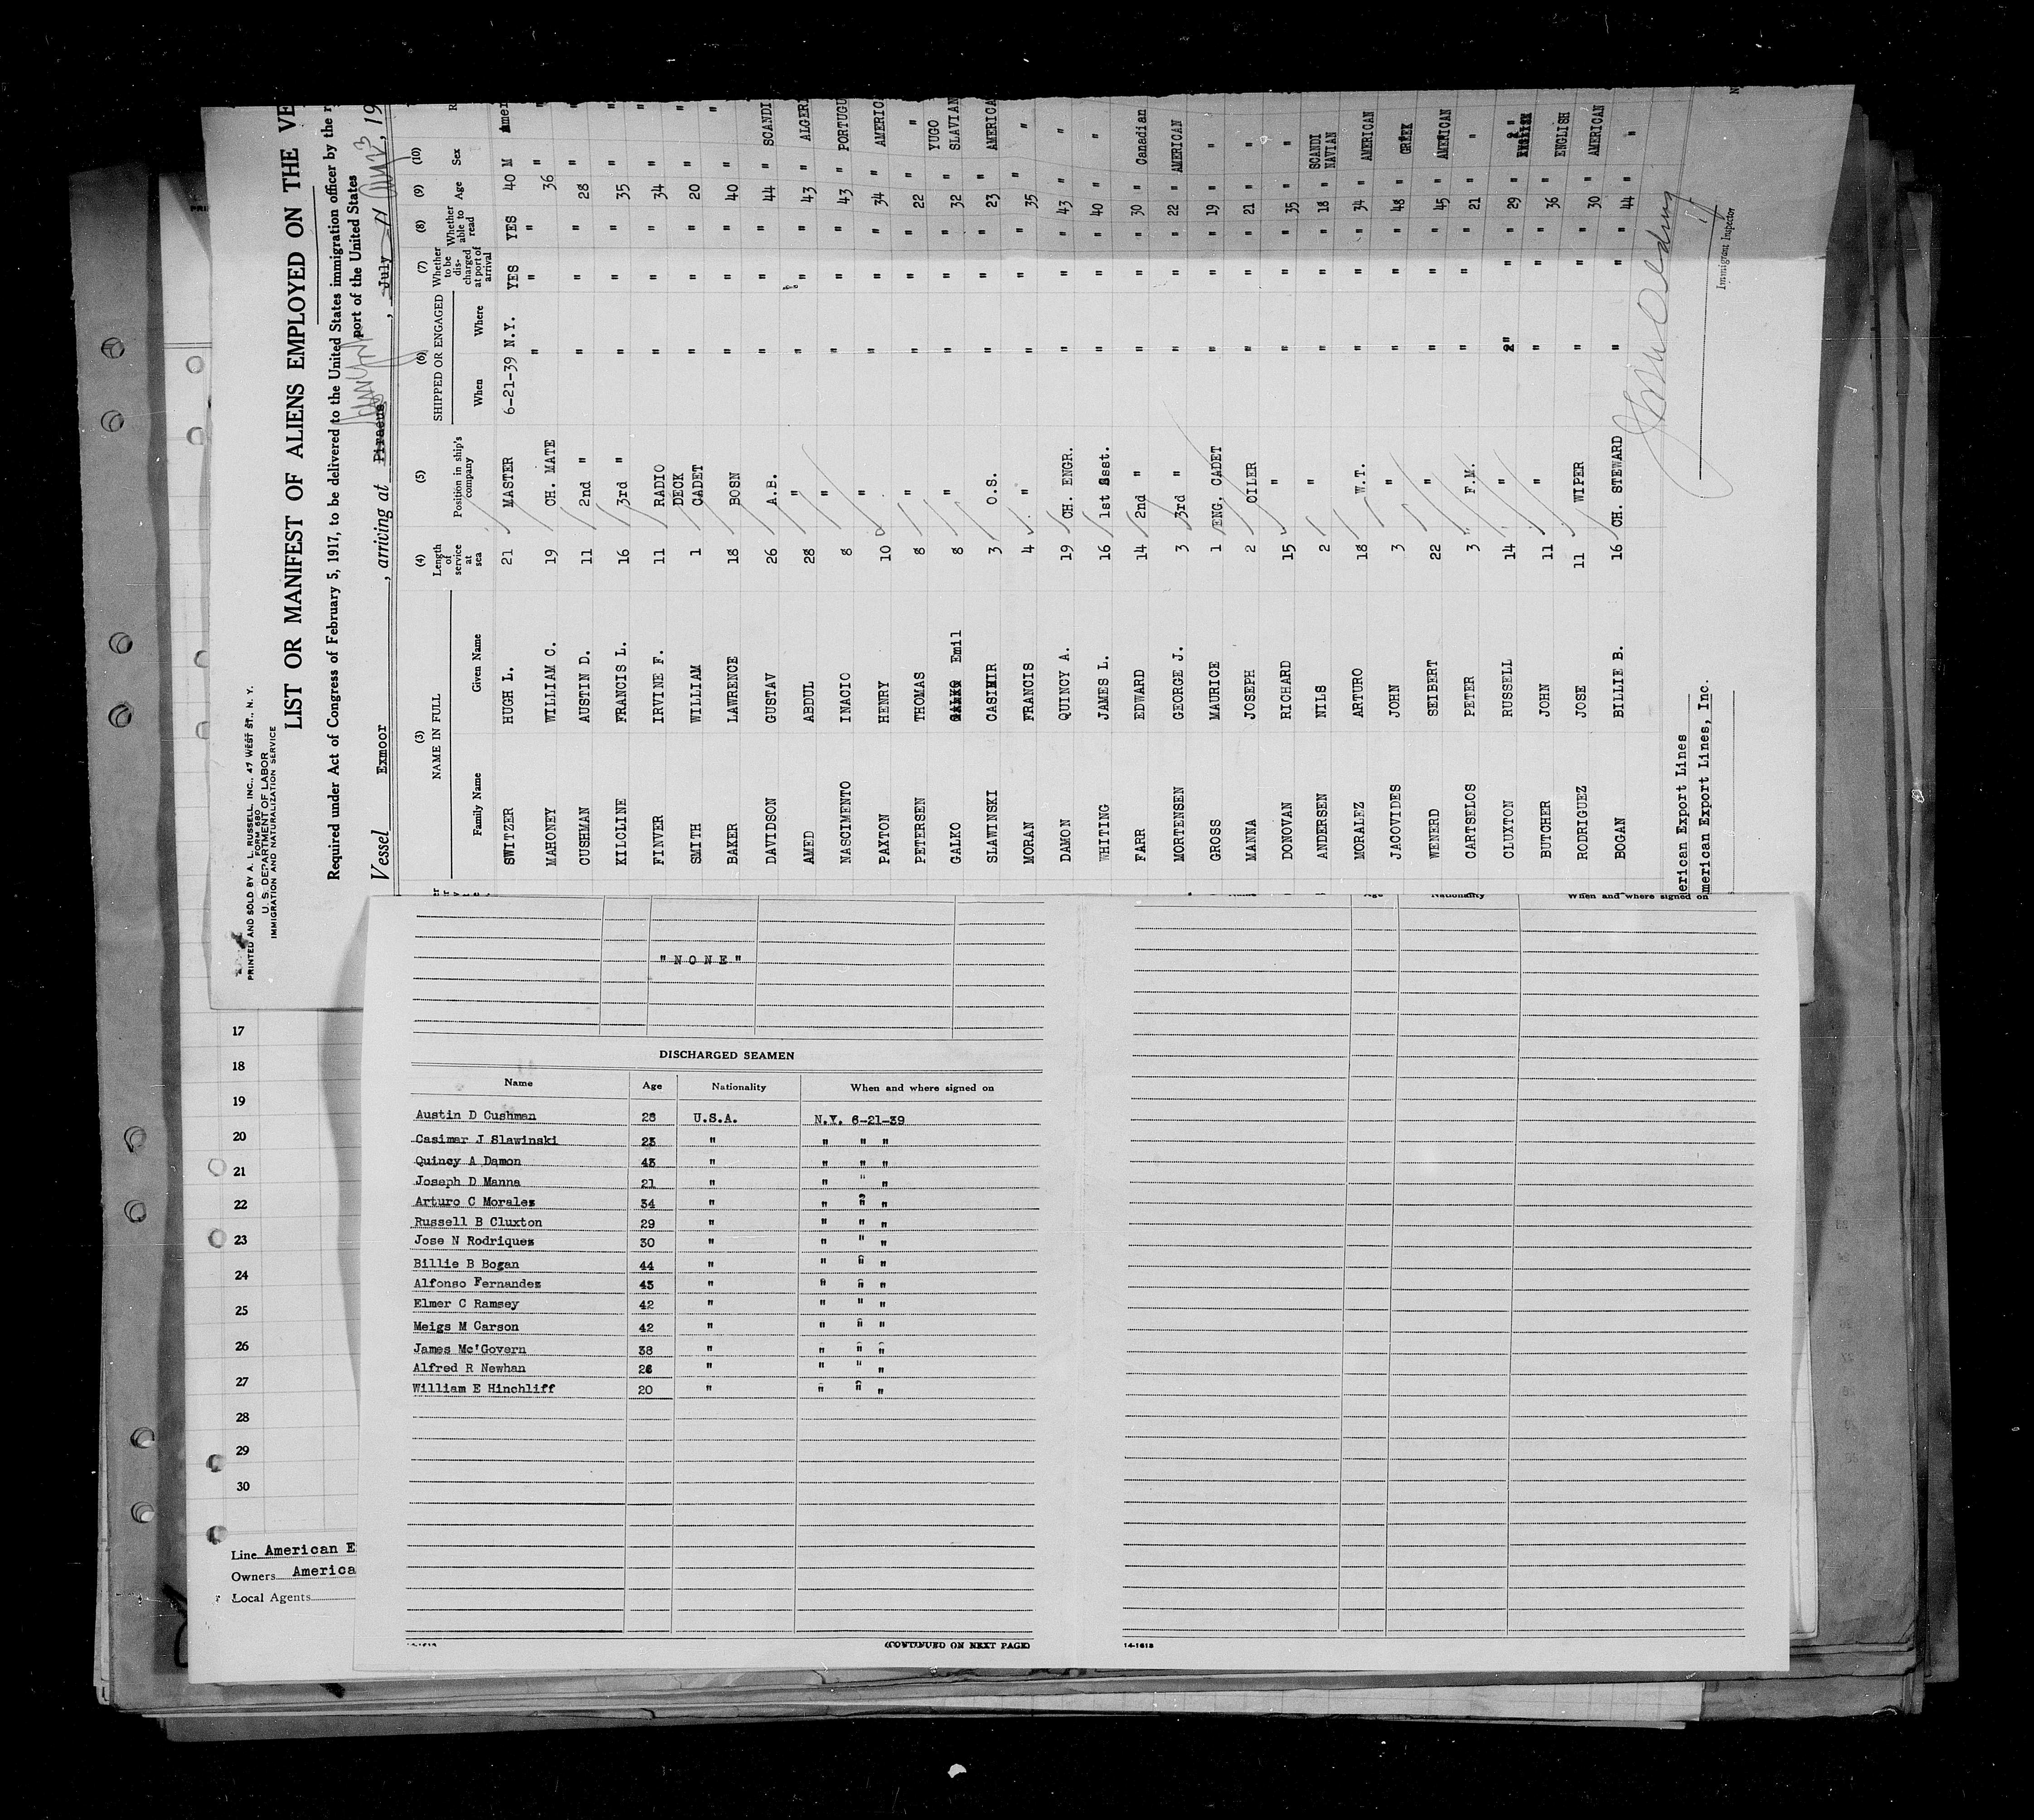 PRINTED AND SOLD BY A. L. RUSSELL, INC., 47 WEST ST., N. Y.
FORM 680
U. S. DEPARTMENT OF LABOR
IMMIGRATION AND NATURALIZATION SERVICE
LIST OR MANIFEST OF ALIENS EMPLOYED ON THE VE
Required under Act of Congress of February 5, 1917, to be delivered to the United States immigration officer by the r
port of the United States
Vessel Exmoor, arriving at Piraeus, July 19
(3) (4) (5) (6) (7) (8) (9) (10)
NAME IN FULL Length of service at sea Position in ship's company SHIPPED OR ENGAGED Whether to be discharged at port of arrival Whether able to read Age Sex R
Family Name Given Name When Where
SWITZER HUGH L. 21 MASTER 6-21-39 N.Y. YES YES 40 M Amer
MAHONEY WILLIAM C. 19 CH. MATE " " " 36 " "
CUSHMAN AUSTIN D. 11 2nd " " " " 28 " "
KILCLINE FRANCIS L. 16 3rd " " " " 35 " "
FINVER IRVINE F. 11 RADIO " " " 34 " "
SMITH WILLIAM 1 DECK CADET " " " 20 " "
BAKER LAWRENCE 18 BOSN " " " 40 " "
DAVIDSON GUSTAV 26 A.B. " " " 44 " SCANDI
AMED ABDUL 28 " " " " 43 " ALGERI
NASCIMENTO INACIO 8 " " " " 43 " PORTUGU
PAXTON HENRY 10 " " " " 34 " AMERIC
PETERSEN THOMAS 8 " " " " 22 " "
GALKO Emil 8 " " " " 32 " YUGO SLAVIAN
SLAWINSKI CASIMIR 3 O.S. " " " 23 " AMERICA
MORAN FRANCIS 4 " " " " 35 " "
DAMON QUINCY A. 19 CH. ENGR. " " " 43 " "
WHITING JAMES L. 16 1st Asst. " " " 40 " "
FARR EDWARD 14 2nd " " " " 30 " Canadian
MORTENSEN GEORGE J. 3 3rd " " " " 22 " AMERICAN
GROSS MAURICE 1 ENG. CADET " " " 19 " "
MANNA JOSEPH 2 OILER " " " 21 " "
DONOVAN RICHARD 15 " " " " 35 " "
ANDERSEN NILS 2 " " " " 18 " SCANDI NAVIAN
MORALEZ ARTURO 18 W.T. " " " 34 " AMERICAN
JACOVIDES JOHN 3 " " " " 48 " GREEK
WENERD SEIBERT 22 " " " " 45 " AMERICAN
CARTSELOS PETER 3 F.M. " " " 21 " "
CLUXTON RUSSELL 14 " " " " 29 " "
BUTCHER JOHN 11 " " " " 36 " ENGLISH
RODRIGUEZ JOSE 11 WIPER " " " 30 " AMERICAN
BOGAN BILLIE B. 16 CH. STEWARD " " " 44 " "
Immigrant Inspector
erican Export Lines
merican Export Lines, Inc.
Age Nationality When and where signed on
"NONE"
DISCHARGED SEAMEN
Name Age Nationality When and where signed on
Austin D Cushman 28 U.S.A. N.Y. 6-21-39
Casimer J Slawinski 23 " " " "
Quincy A Damon 43 " " " "
Joseph D Manna 21 " " " "
Arturo C Morales 34 " " " "
Russell B Cluxton 29 " " " "
Jose N Rodriques 30 " " " "
Billie B Bogan 44 " " " "
Alfonso Fernandez 43 " " " "
Elmer C Ramsey 42 " " " "
Meigs M Carson 42 " " " "
James Mc'Govern 38 " " " "
Alfred R Newhan 26 " " " "
William E Hinchliff 20 " " " "
(CONTINUED ON NEXT PAGE)
14-1613
17
18
19
20
21
22
23
24
25
26
27
28
29
30
Line American E
Owners America
Local Agents